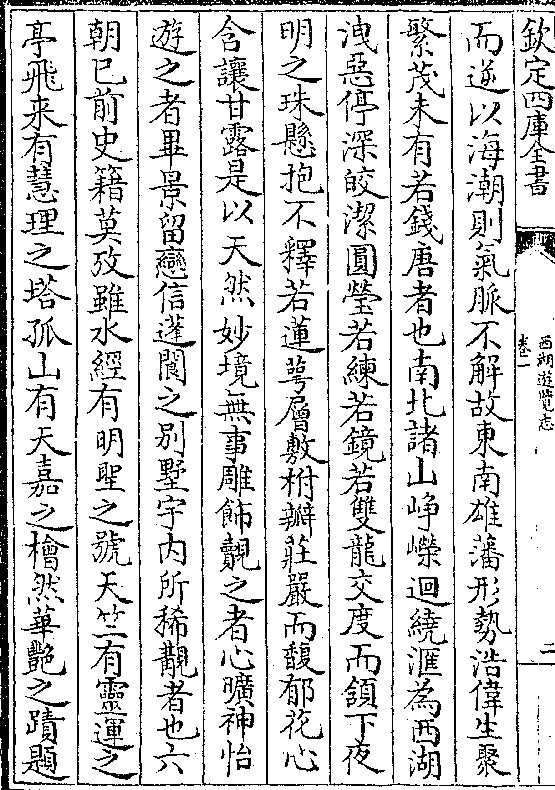 欽定四庫全書
西湖遊覽志
卷一
二
而遂以海潮則氣脈不解故東南雄藩形勢浩偉生聚
繁茂未有若錢唐者也南北諸山峥嶸迴繞滙為西湖
洩惡停深皎潔圓瑩若練若鏡若雙龍交度而頷下夜
明之珠懸抱不釋若蓮萼層敷柎瓣莊嚴而馥郁花心
含讓甘露是以天然妙境無事雕飾覿之者心曠神怡
遊之者畢景留戀信蓬閬之别墅宇内所稀覯者也六
朝已前史籍莫攷雖水經有明聖之號天竺有靈運之
亭飛来有慧理之塔孤山有天嘉之檜然華艷之蹟題